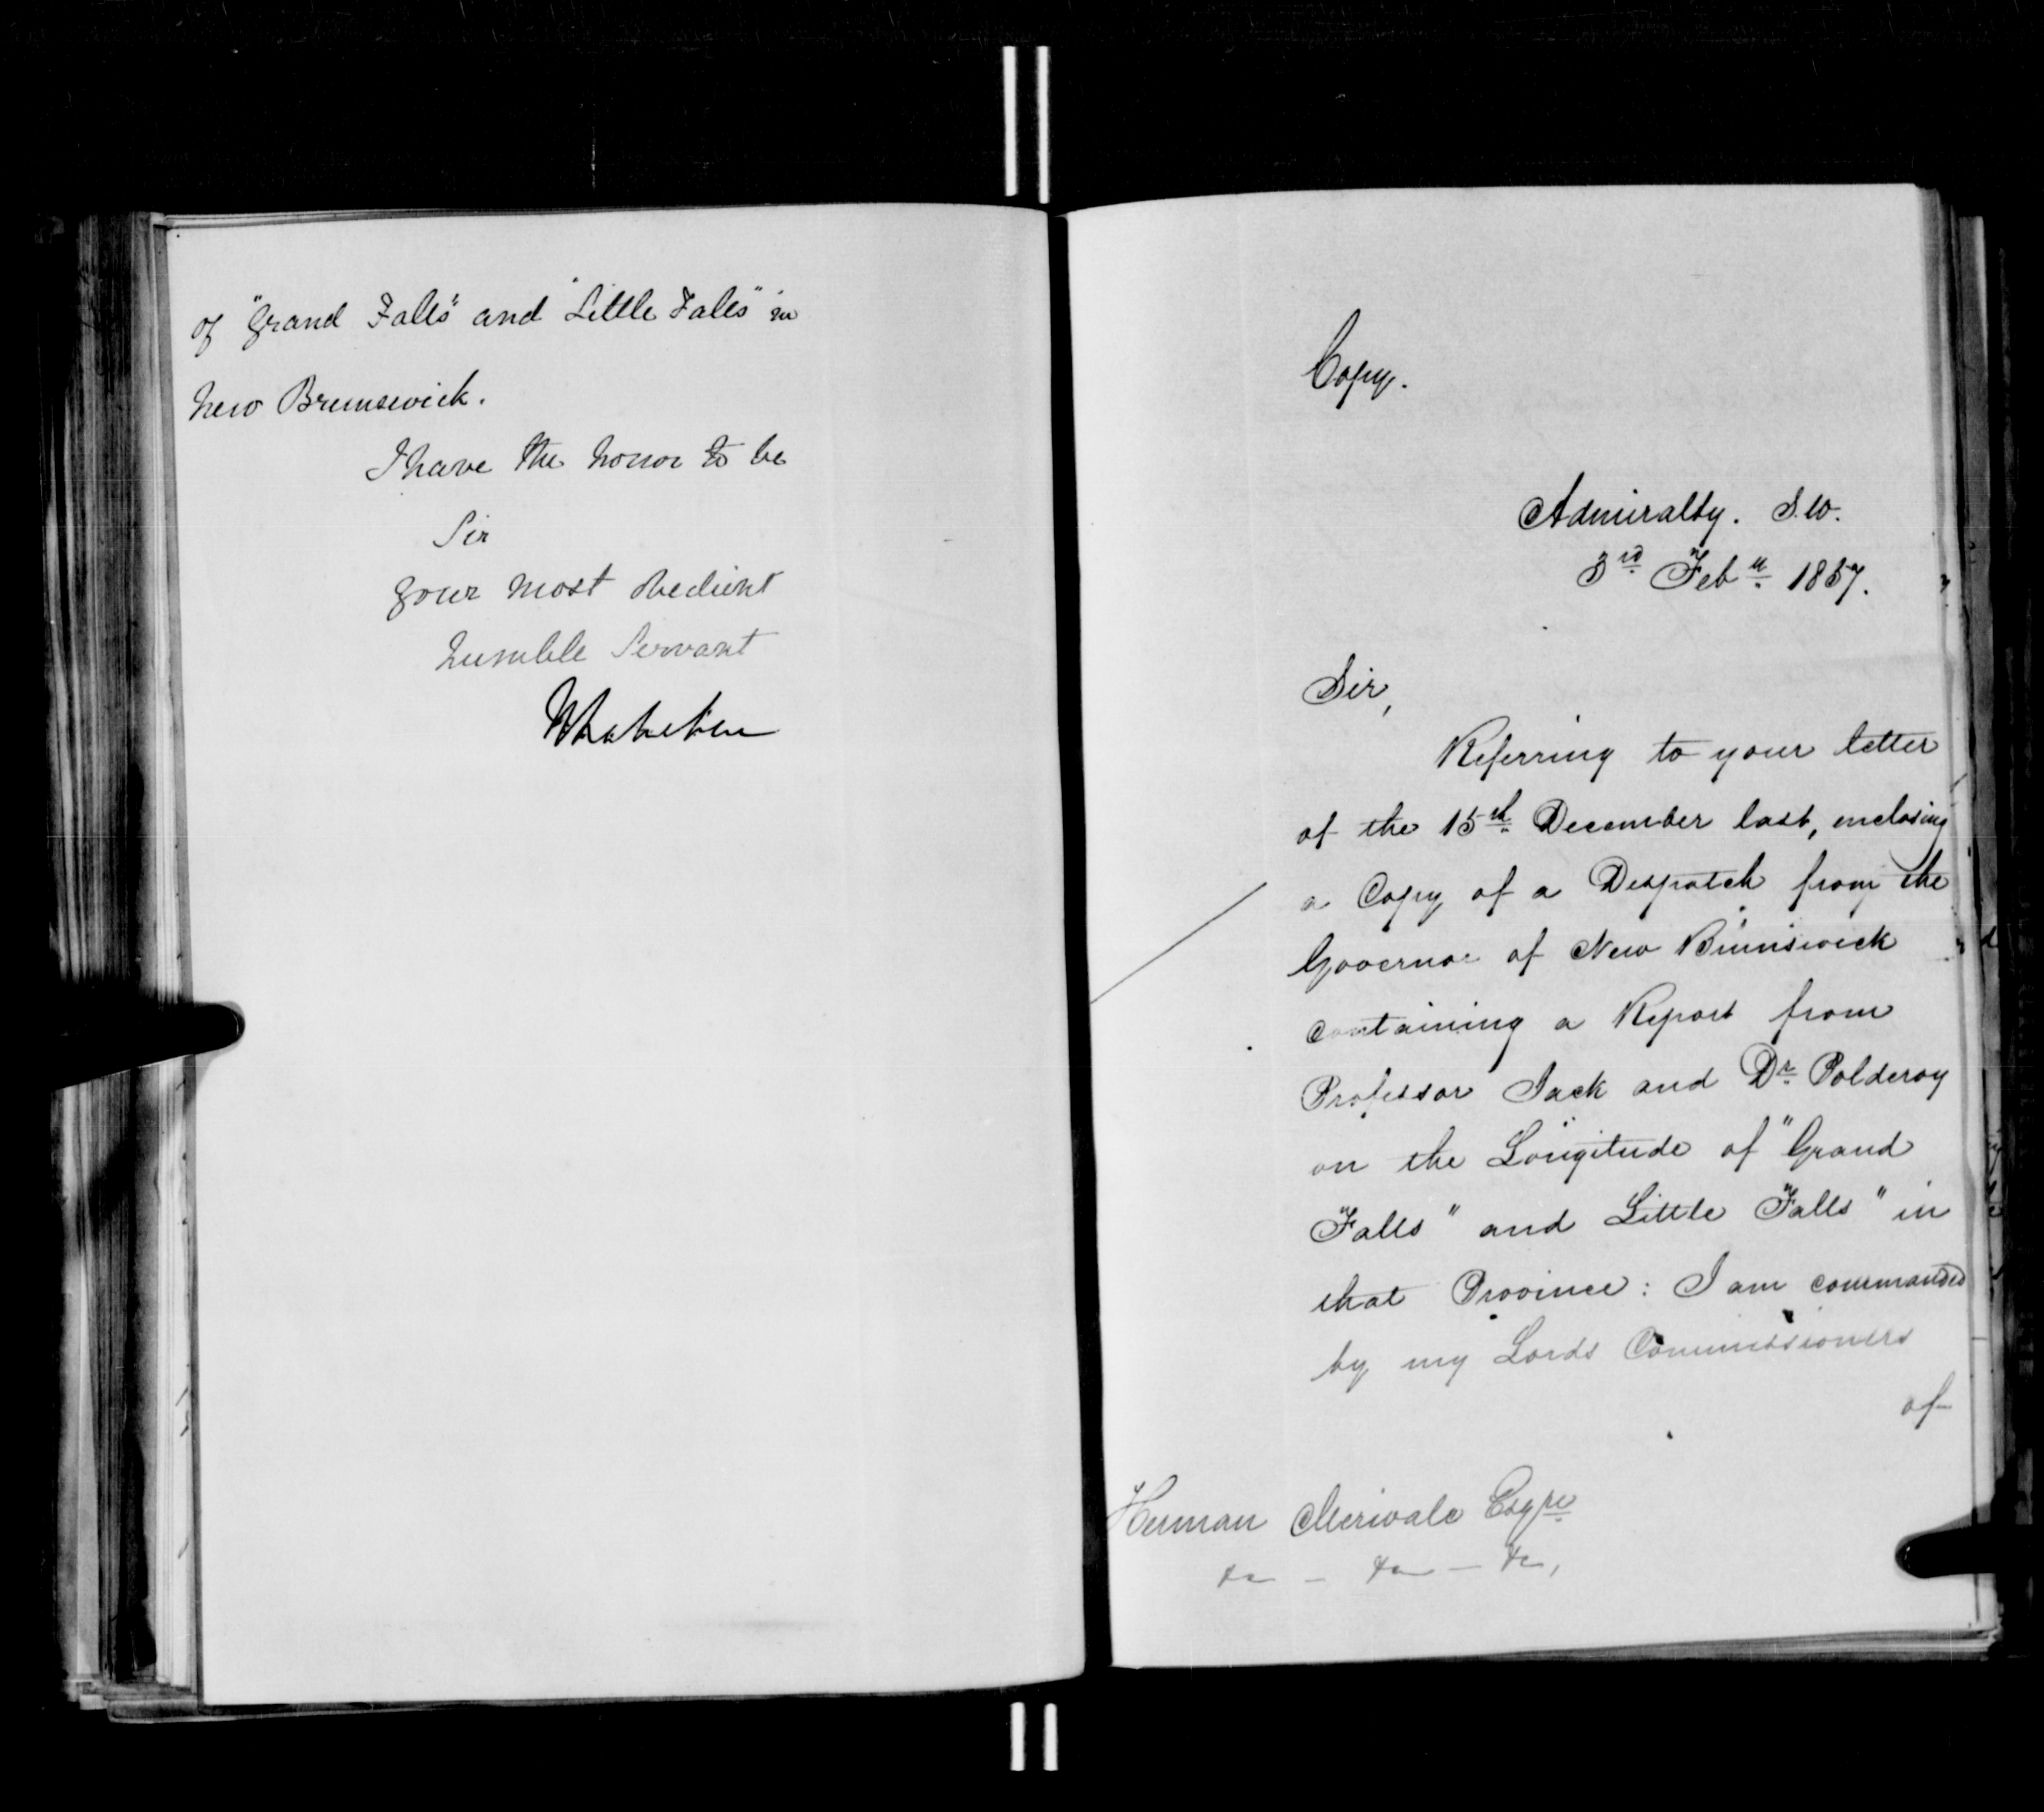 of "Grand Falls" and "Little Falls" in
New Brunswick.
I have the honor to be
Sir
Your most obedient
humble Servant
Copy.
Admiralty. S.W.
3rd Feby 1857.
Sir,
Referring to your letter
of the 15th December last, enclosing
a Copy of a Despatch from the
Governor of New Brunswick
containing a Report from
Professor Jack and Dr Polderoy
on the Longitude of "Grand
Falls" and Little Falls" in
that Province: I am commanded
by my Lords Commissioners
of
Herman Merivale Esqre
&c — &c — &c,